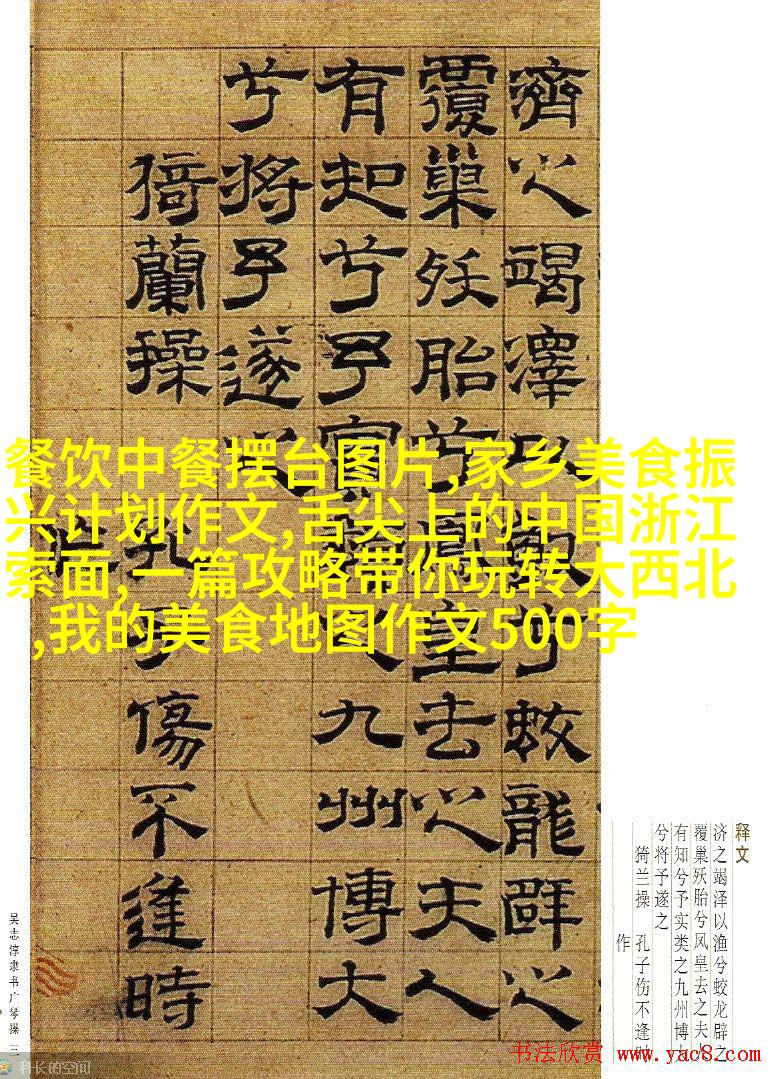 濟之竭澤以漁兮蛟龍辟之
覆巢殀胎兮鳳皇去之夫人
有知兮予寔類之九州博大
兮将予遂之
猗蘭操 孔子傷不逢時
作
餐饮中餐摆台图片,家乡美食振
兴计划作文,舌尖上的中国浙江
索面,一篇攻略带你玩转大西北
,我的美食地图作文500字
释文
济之竭泽以渔兮蛟龙辟之
覆巢殀胎兮凤皇去之夫
有知兮予实类之九州博
兮将予遂之
猗兰操 孔子伤不逢
作
吴志淳隶书广琴操 三
科长的空间
书法欣赏 www.yac8.com